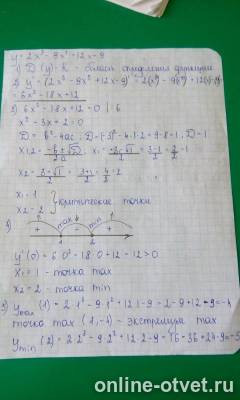 y = 2x³ - 9x² + 12x - 9
1) D(y) = R - область определения функции
2) y' = (2x³ - 9x² + 12x - 9)' =
= 6x² - 18x + 12
3) 6x² - 18x + 12 = 0 | : 6
x² - 3x + 2 = 0
D = b² - 4ac; D = (-3)² - 4·1·2 = 9 - 8 = 1; D = 1
x₁,₂ = (-b ± √D)/2a x₁ = = (3-1)/2 = 2/2 = 1
x₂ = (3+√1)/2 = (3+1)/2 = 4/2 = 2
x₁ = 1
x₂ = 2 } критические точки
+ max - min +
1 2
y'(0) = 6·0² - 18·0 + 12 = 12 > 0
x₁ = 1 - точка max
x₂ = 2 - точка min
y max (1) = 2·1³ - 9·1² + 12·1 - 9 = 2 - 9 + 12 - 9 = -4
точка max (1, -4) - экстремум max
y min (2) = 2·2³ - 9·2² + 12·2 - 9 = 16 - 36 + 24 - 9 = -5
online-otvet.ru